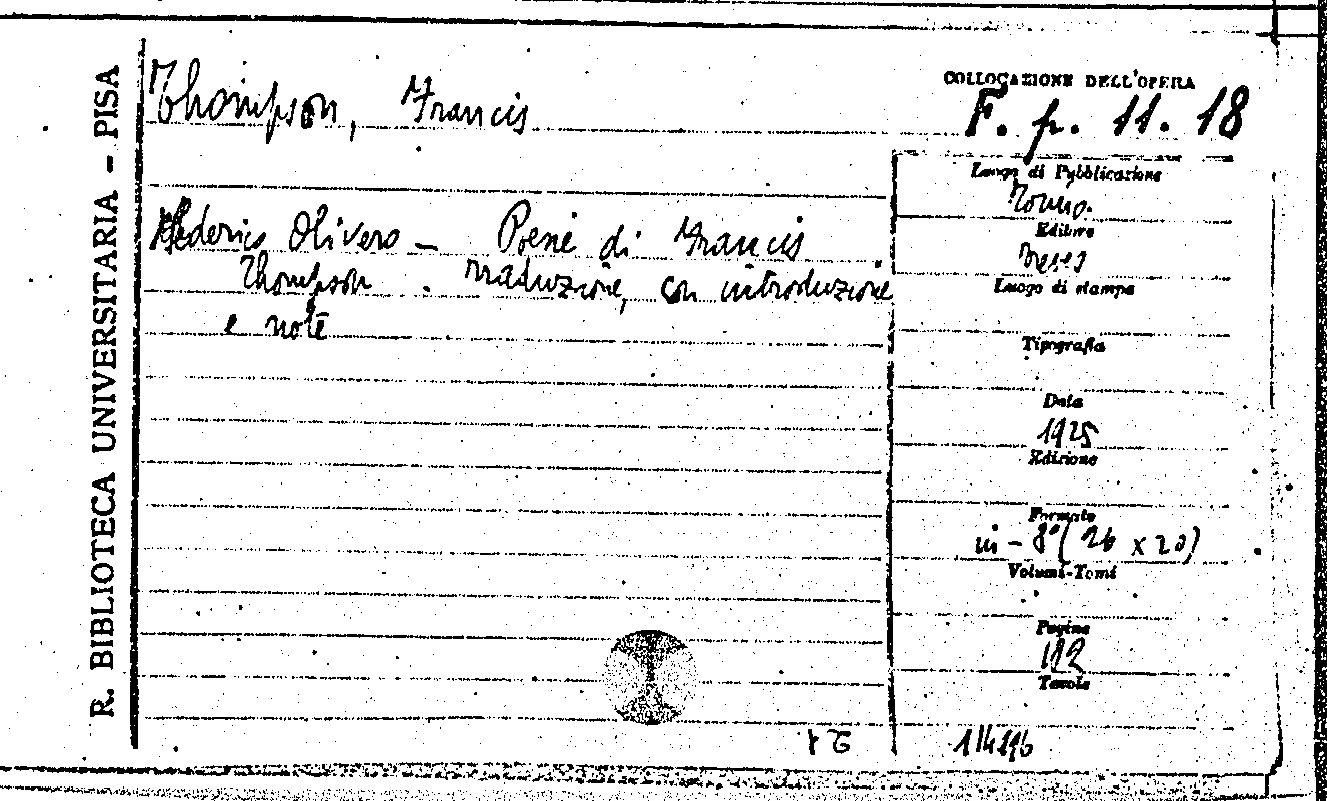 R. BIBLIOTECA UNIVERSITARIA - PISA
Thompson, Francis
COLLOCAZIONE DELL'OPERA
F. p. 11. 18
Federico Olivero - Poesie di Francis
Thompson. Traduzione, con introduzione
e note
Luogo di Pubblicazione
Torino.
Editore
Luogo di stampa
Tipografia
Data
1925
Edizione
Formato
in - 8° (26 x 20)
Volumi-Tomi
Pagine
112
Tavole